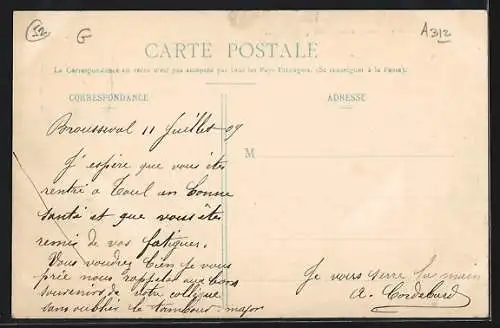 52
G
A312
CARTE POSTALE
La Correspondance au recto n'est pas acceptée par tous les Pays Étrangers. (Se renseigner à la Poste).
CORRESPONDANCE
ADRESSE
Brousseval 11 Juillet 09
M
J'espère que vous êtes
rentré à Toul en bonne
santé et que vous êtes
remis de vos fatigues.
Vous voudrez bien je vous
prie nous rappeler aux bons
souvenirs de votre collègue
sans oublier le tambour-major
Je vous serre la main
A.